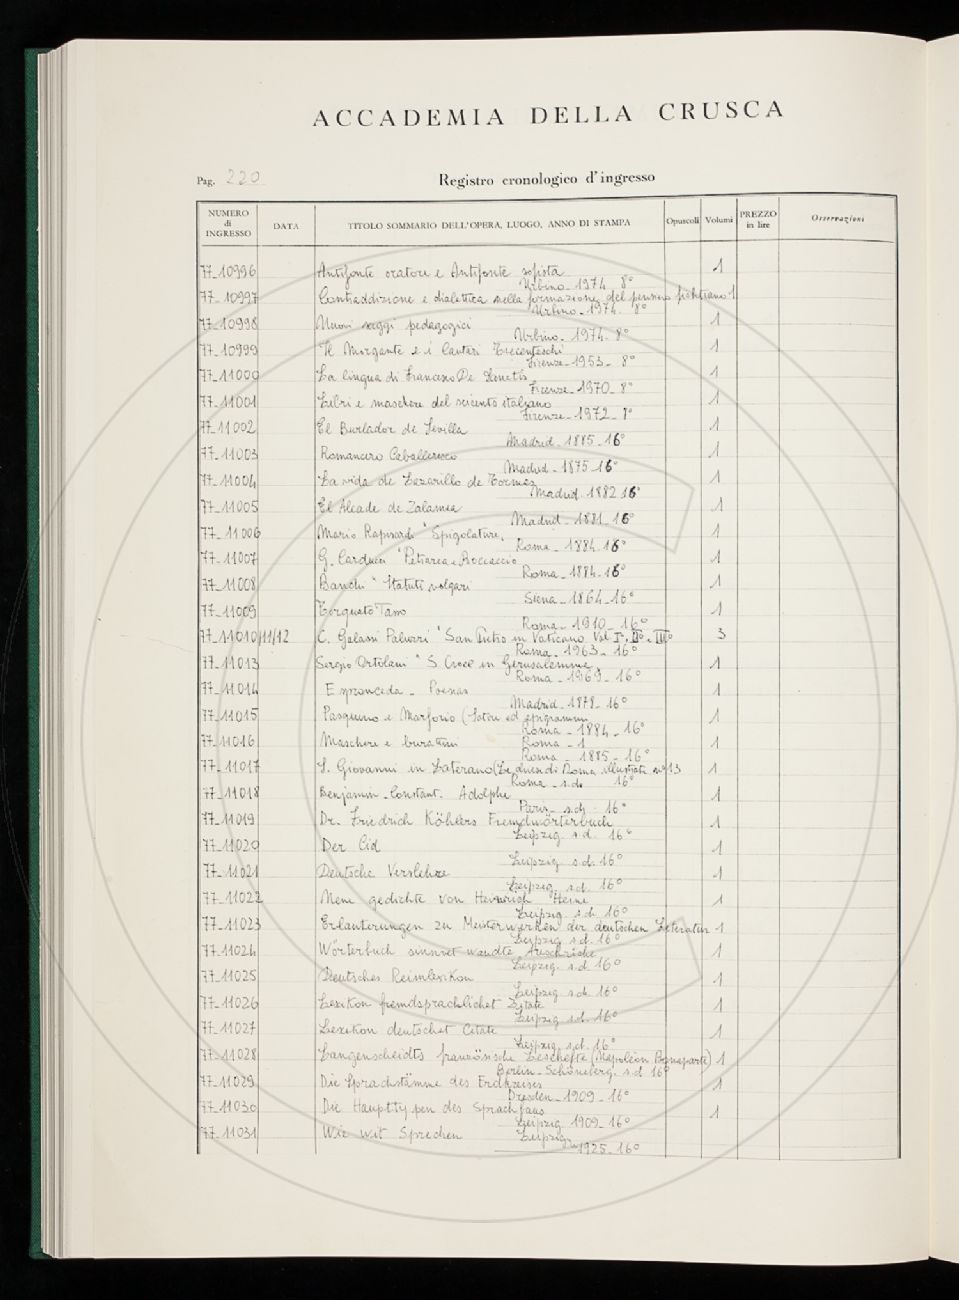 ACCADEMIA DELLA CRUSCA
Pag. 220
Registro cronologico d'ingresso
NUMERO di INGRESSO DATA TITOLO SOMMARIO DELL'OPERA, LUOGO, ANNO DI STAMPA Opuscoli Volumi PREZZO in lire Osservazioni
77-10996 Antifonte oratore e Antifonte sofista 1
Urbino - 1974 8°
77-10997 Contraddizione e dialettica nella formazione del pensiero fichtiano 1
Urbino - 1974 8°
77-10998 Nuovi saggi pedagogici 1
Urbino - 1974 - 8°
77-10999 Il Morgante e i Cantari Trecenteschi 1
Firenze - 1953 - 8°
77-11000 La lingua di Francesco De Sanctis 1
Firenze - 1970 - 8°
77-11001 Libri e maschere del seicento italiano 1
Firenze - 1972 - 8°
77-11002 El Burlador de Sevilla 1
Madrid - 1885 - 16°
77-11003 Romancero Caballeresco 1
Madrid - 1875 - 16°
77-11004 La vida de Lazarillo de Tormes 1
Madrid 1882 16°
77-11005 El Alcade de Zalamea 1
Madrid - 1881 - 16°
77-11006 Mario Rapisardi "Spigolature" 1
Roma - 1884 - 16°
77-11007 G. Carducci "Petrarca e Boccaccio 1
Roma - 1884 - 16°
77-11008 Banchi "Statuti volgari 1
Siena - 1864 - 16°
77-11009 Torquato Tasso 1
Roma - 1910 - 16°
77-11010/11/12 C. Galassi Paluzzi "San Pietro in Vaticano Vol I°, II° e III° 3
Roma - 1963 - 16°
77-11013 Sergio Ortolani "S. Croce in Gerusalemme" 1
Roma - 1969 - 16°
77-11014 Espronceda - Poesias 1
Madrid - 1878 - 16°
77-11015 Pasquino e Marforio (Satire ed epigrammi 1
Roma - 1884 - 16°
77-11016 Maschere e burattini Roma - 1 1
Roma - 1885 - 16°
77-11017 S. Giovanni in Laterano (Le chiese di Roma illustrate n° 13 1
Roma - s.d. 16°
77-11018 Benjamin Constant. Adolphe 1
Paris - s.d. - 16°
77-11019 Dr. Friedrich Köhlers Fremdwörterbuch 1
Leipzig s.d. 16°
77-11020 Der Cid 1
Leipzig s.d. 16°
77-11021 Deutsche Verslehre 1
Leipzig s.d. 16°
77-11022 Neue gedichte von Heinrich Heine 1
Leipzig s.d. 16°
77-11023 Erläuterungen zu Meisterwerken der deutschen Literatur 1
Leipzig s.d. 16°
77-11024 Wörterbuch sinnverwandte 1
Leipzig s.d. 16°
77-11025 Deutsches Reimlexikon 1
Leipzig s.d. 16°
77-11026 Lexikon fremdsprachlichet Zitate 1
Leipzig s.d. 16°
77-11027 Lexikon deutschet Citate 1
Leipzig s.d. 16°
77-11028 Langenscheidts französische Lesehefte (Napoleon Bonaparte) 1
Berlin - Schöneberg. s.d 16°
77-11029 Die Sprachstämme des Erdkreises 1
Dresden - 1909 - 16°
77-11030 Die Haupttypen des Sprachbaus 1
Leipzig 1909 - 16°
77-11031 Wie wit Sprechen Leipzig
1925 - 16°